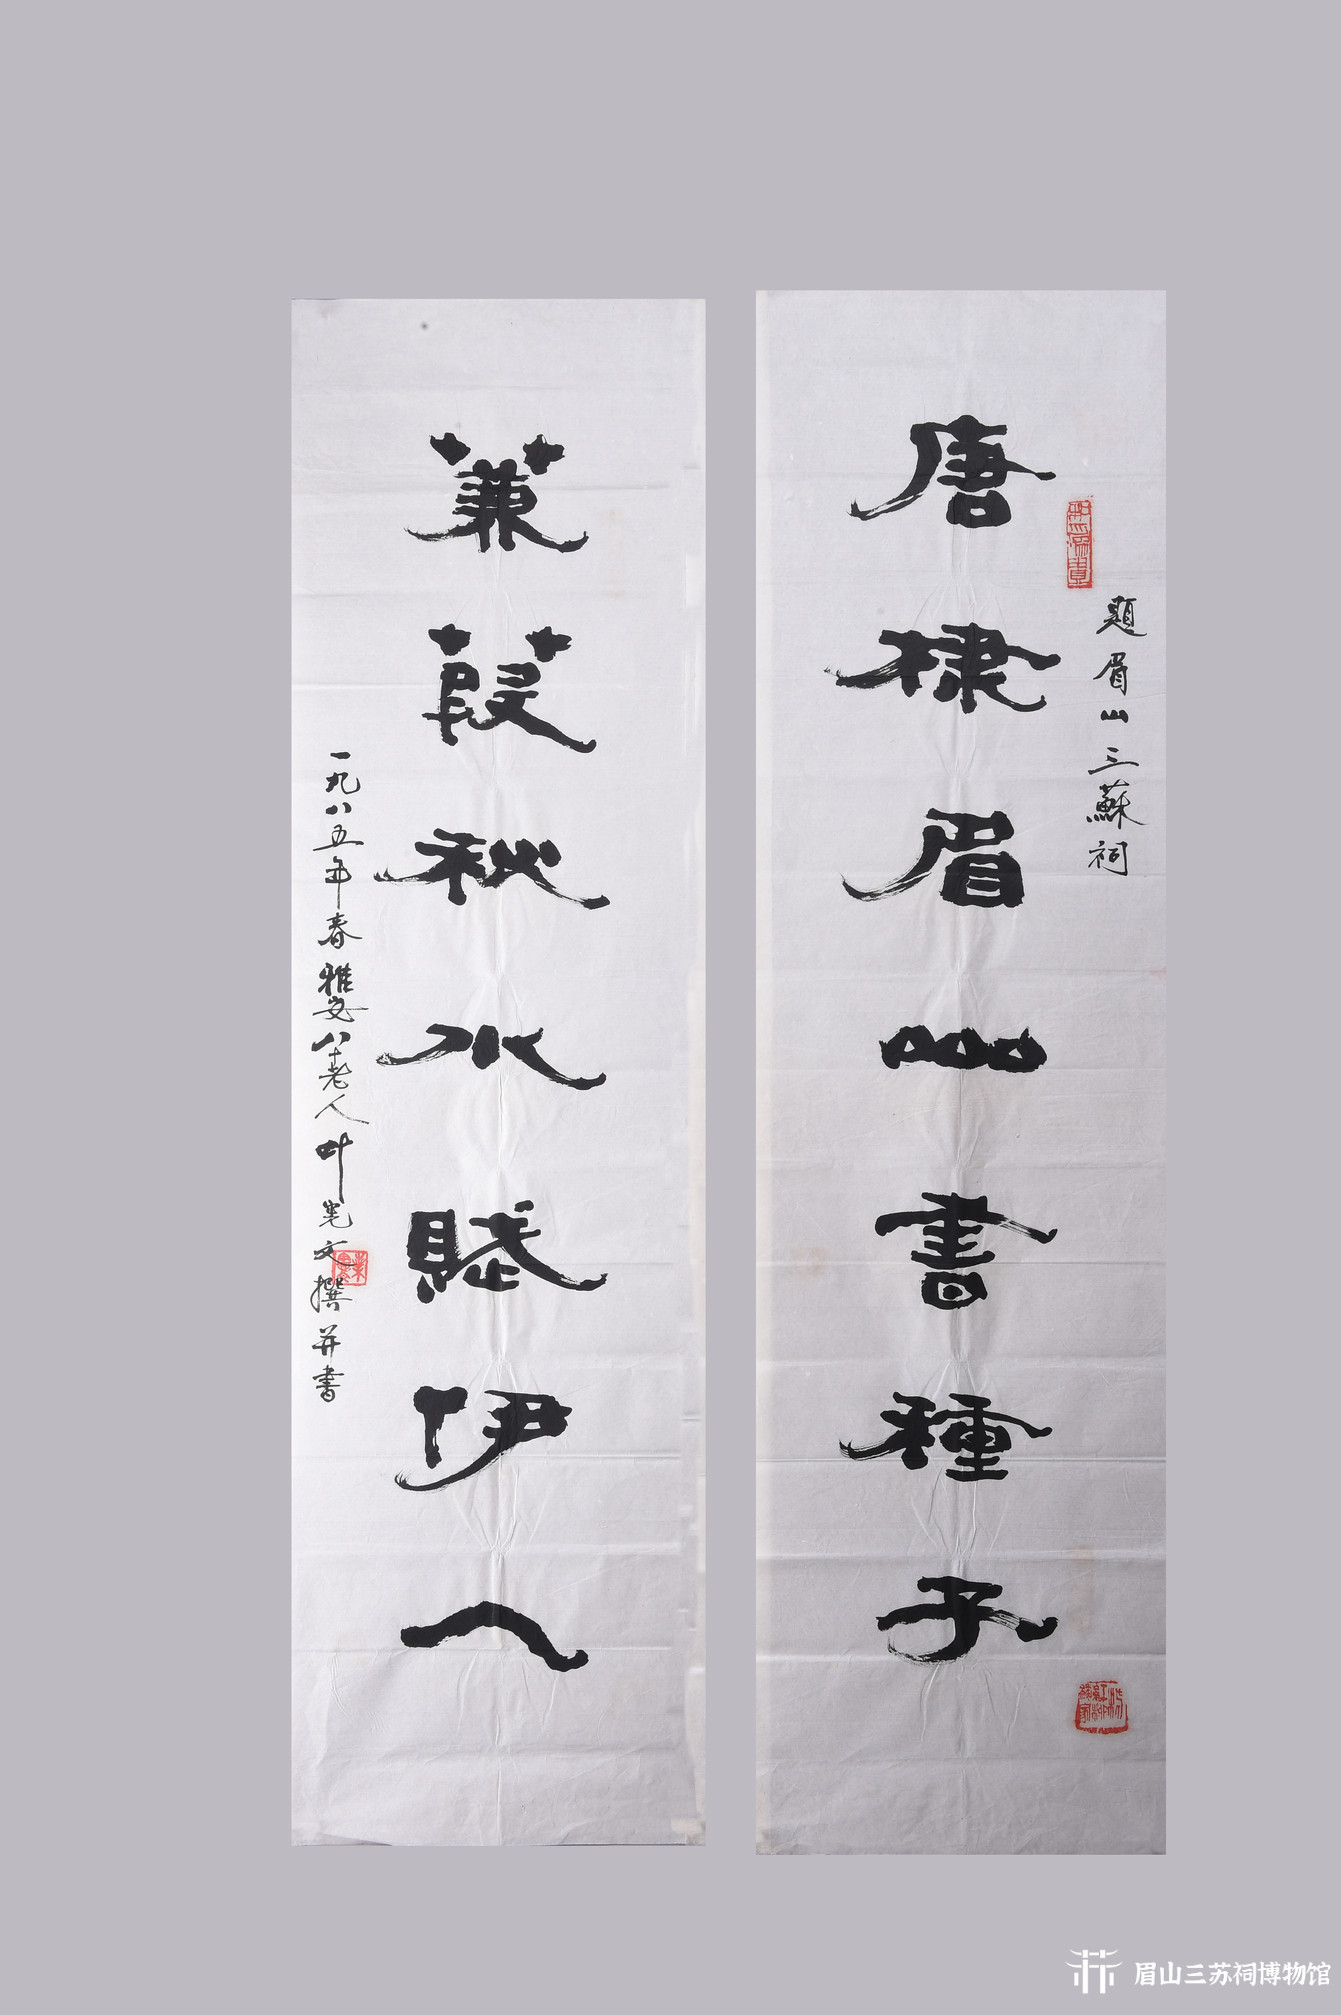 題眉山三蘇祠
唐棣眉山書種子
蒹葭秋水賦伊人
一九八五年春雅安八十老人叶光文撰并書
眉山三苏祠博物馆